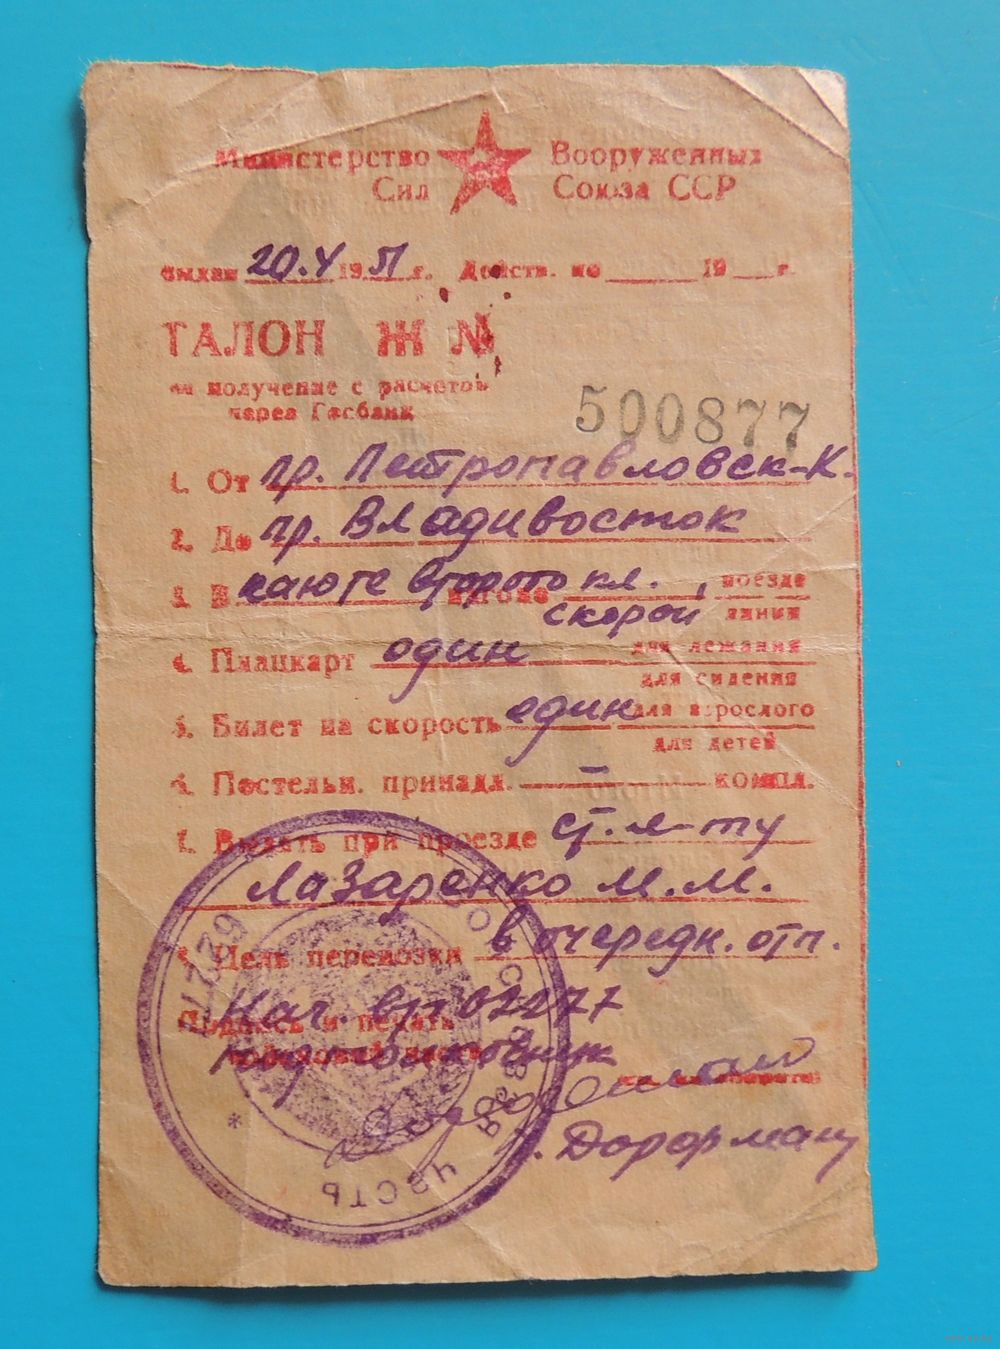 Министерство Вооруженных
Сил Союза ССР
выдан 20.V 1951 г. Действ. по ____ 19__ г.
ТАЛОН Ж №
на получение с расчетов
через Госбанк
500877
1. От пр. Петропавловск-К.
2. До пр. Владивосток
3. В каюте второго кл. вагоне, поезде
скорой линии
4. Плацкарт один для лежания
для сидения
5. Билет на скорость един для взрослого
для детей
6. Постельн. принадл. – компл.
7. Выдать при проезде ст. л-ту
Лазаренко М.М.
8. Цель перевозки в очередн. отп.
Нач. 
Подпись и печать
войсковой части
подполковник
Дорфман
62277
часть